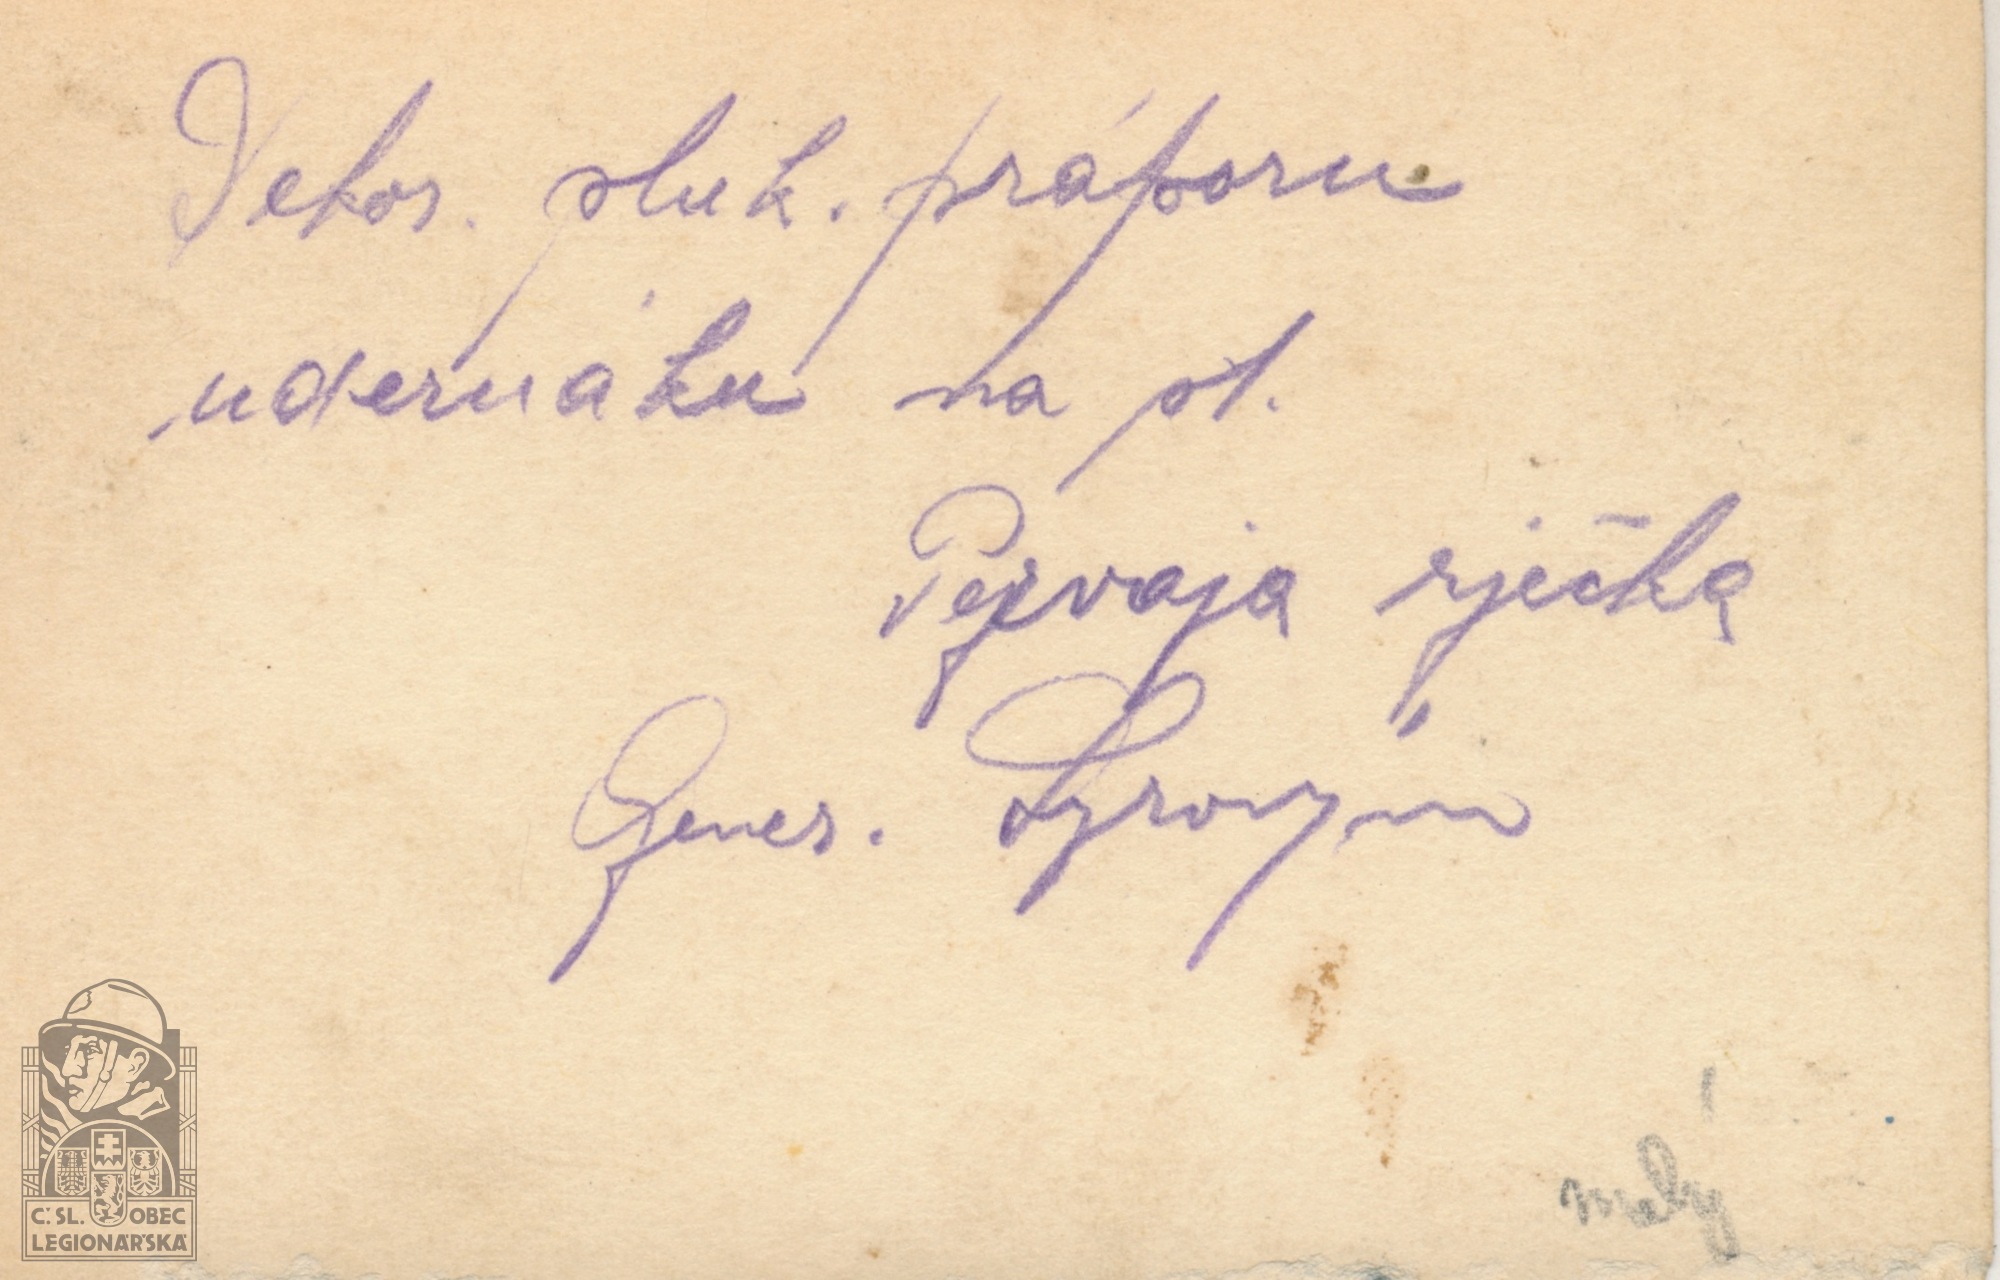 Dekor. pluk. práporu
uderňáku na st.
Pervaja rječka
Gener. Syrovým
malý
Č. SL. OBEC
LEGIONÁŘSKÁ